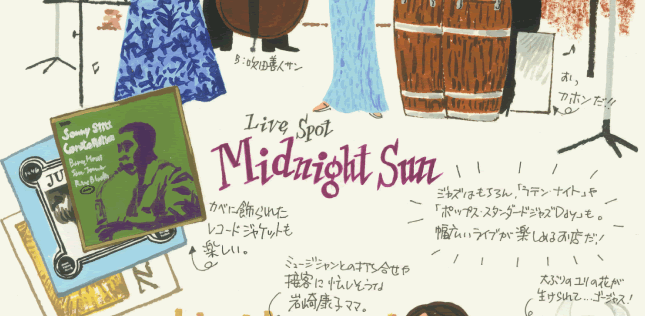 B:吹田善人サン
おっ
カホンだ!!
Live Spot
Midnight Sun
Sonny Stitt
Barry Harris
JU
カベに飾られた
レコードジャケットも
楽しい。
ジャズはもちろん、「ラテン・ナイト」や
「ポップス・スタンダードジャズDay」も。
幅広いライブが楽しめるお店だ!
ミュージシャンとの打ち合せや
接客に忙しそうな
岩崎康子ママ。
大ぶりのユリの花が
生けられて…ゴージャス!